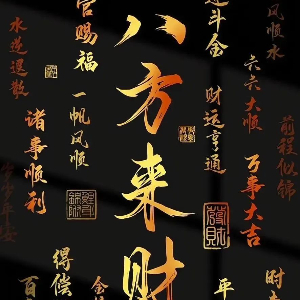 风顺水
前程似锦
时
六六大顺
万事大吉
进斗金
财运亨通
平
八方来财
官赐福
一帆风顺
金
水逆退散
诸事顺利
得偿
百